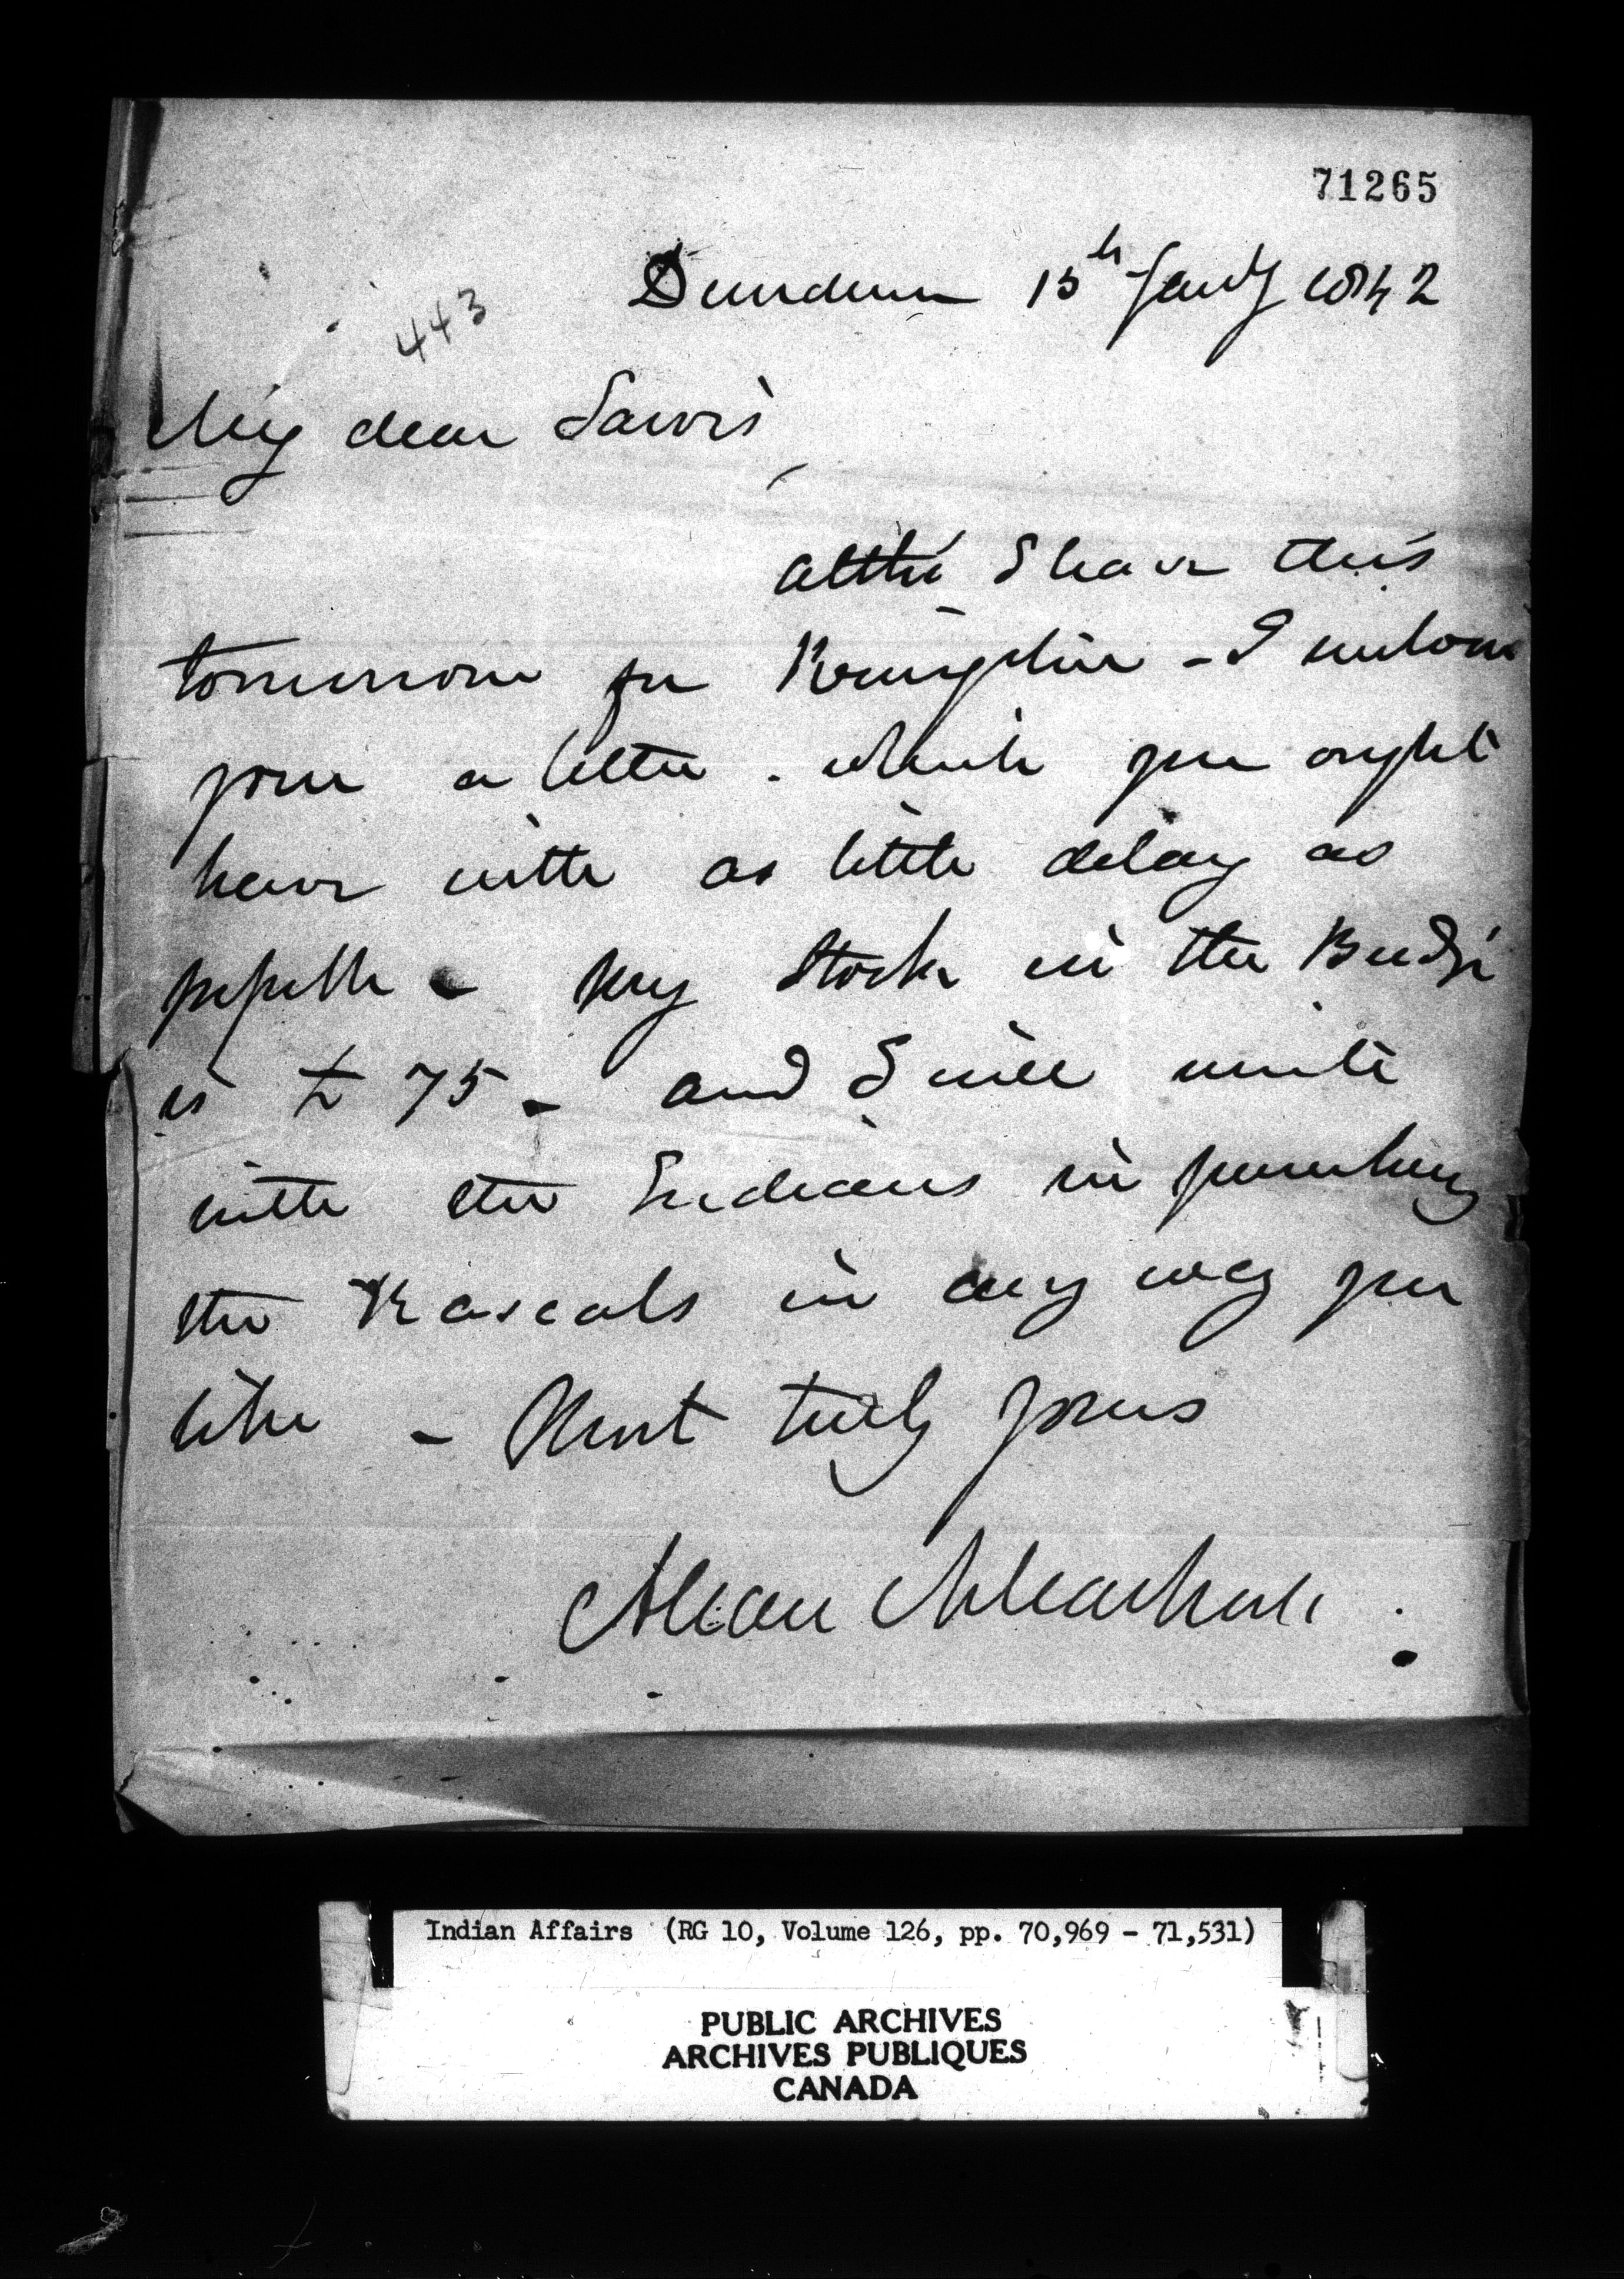 71265
Dundurn 15th Jany 1842
443
My dear Jarvis
altho' I leave this
tomorrow for Kingston - I enclose
you a letter which you ought
have with as little delay as
possible - My Stock in the Bridge
is £ 75 - and I will unite
with the Indians in punishing
the Rascals in any way you
like - Most truly yours
Allan N MacNab
Indian Affairs (RG 10, Volume 126, pp. 70,969 - 71,531)
PUBLIC ARCHIVES
ARCHIVES PUBLIQUES
CANADA